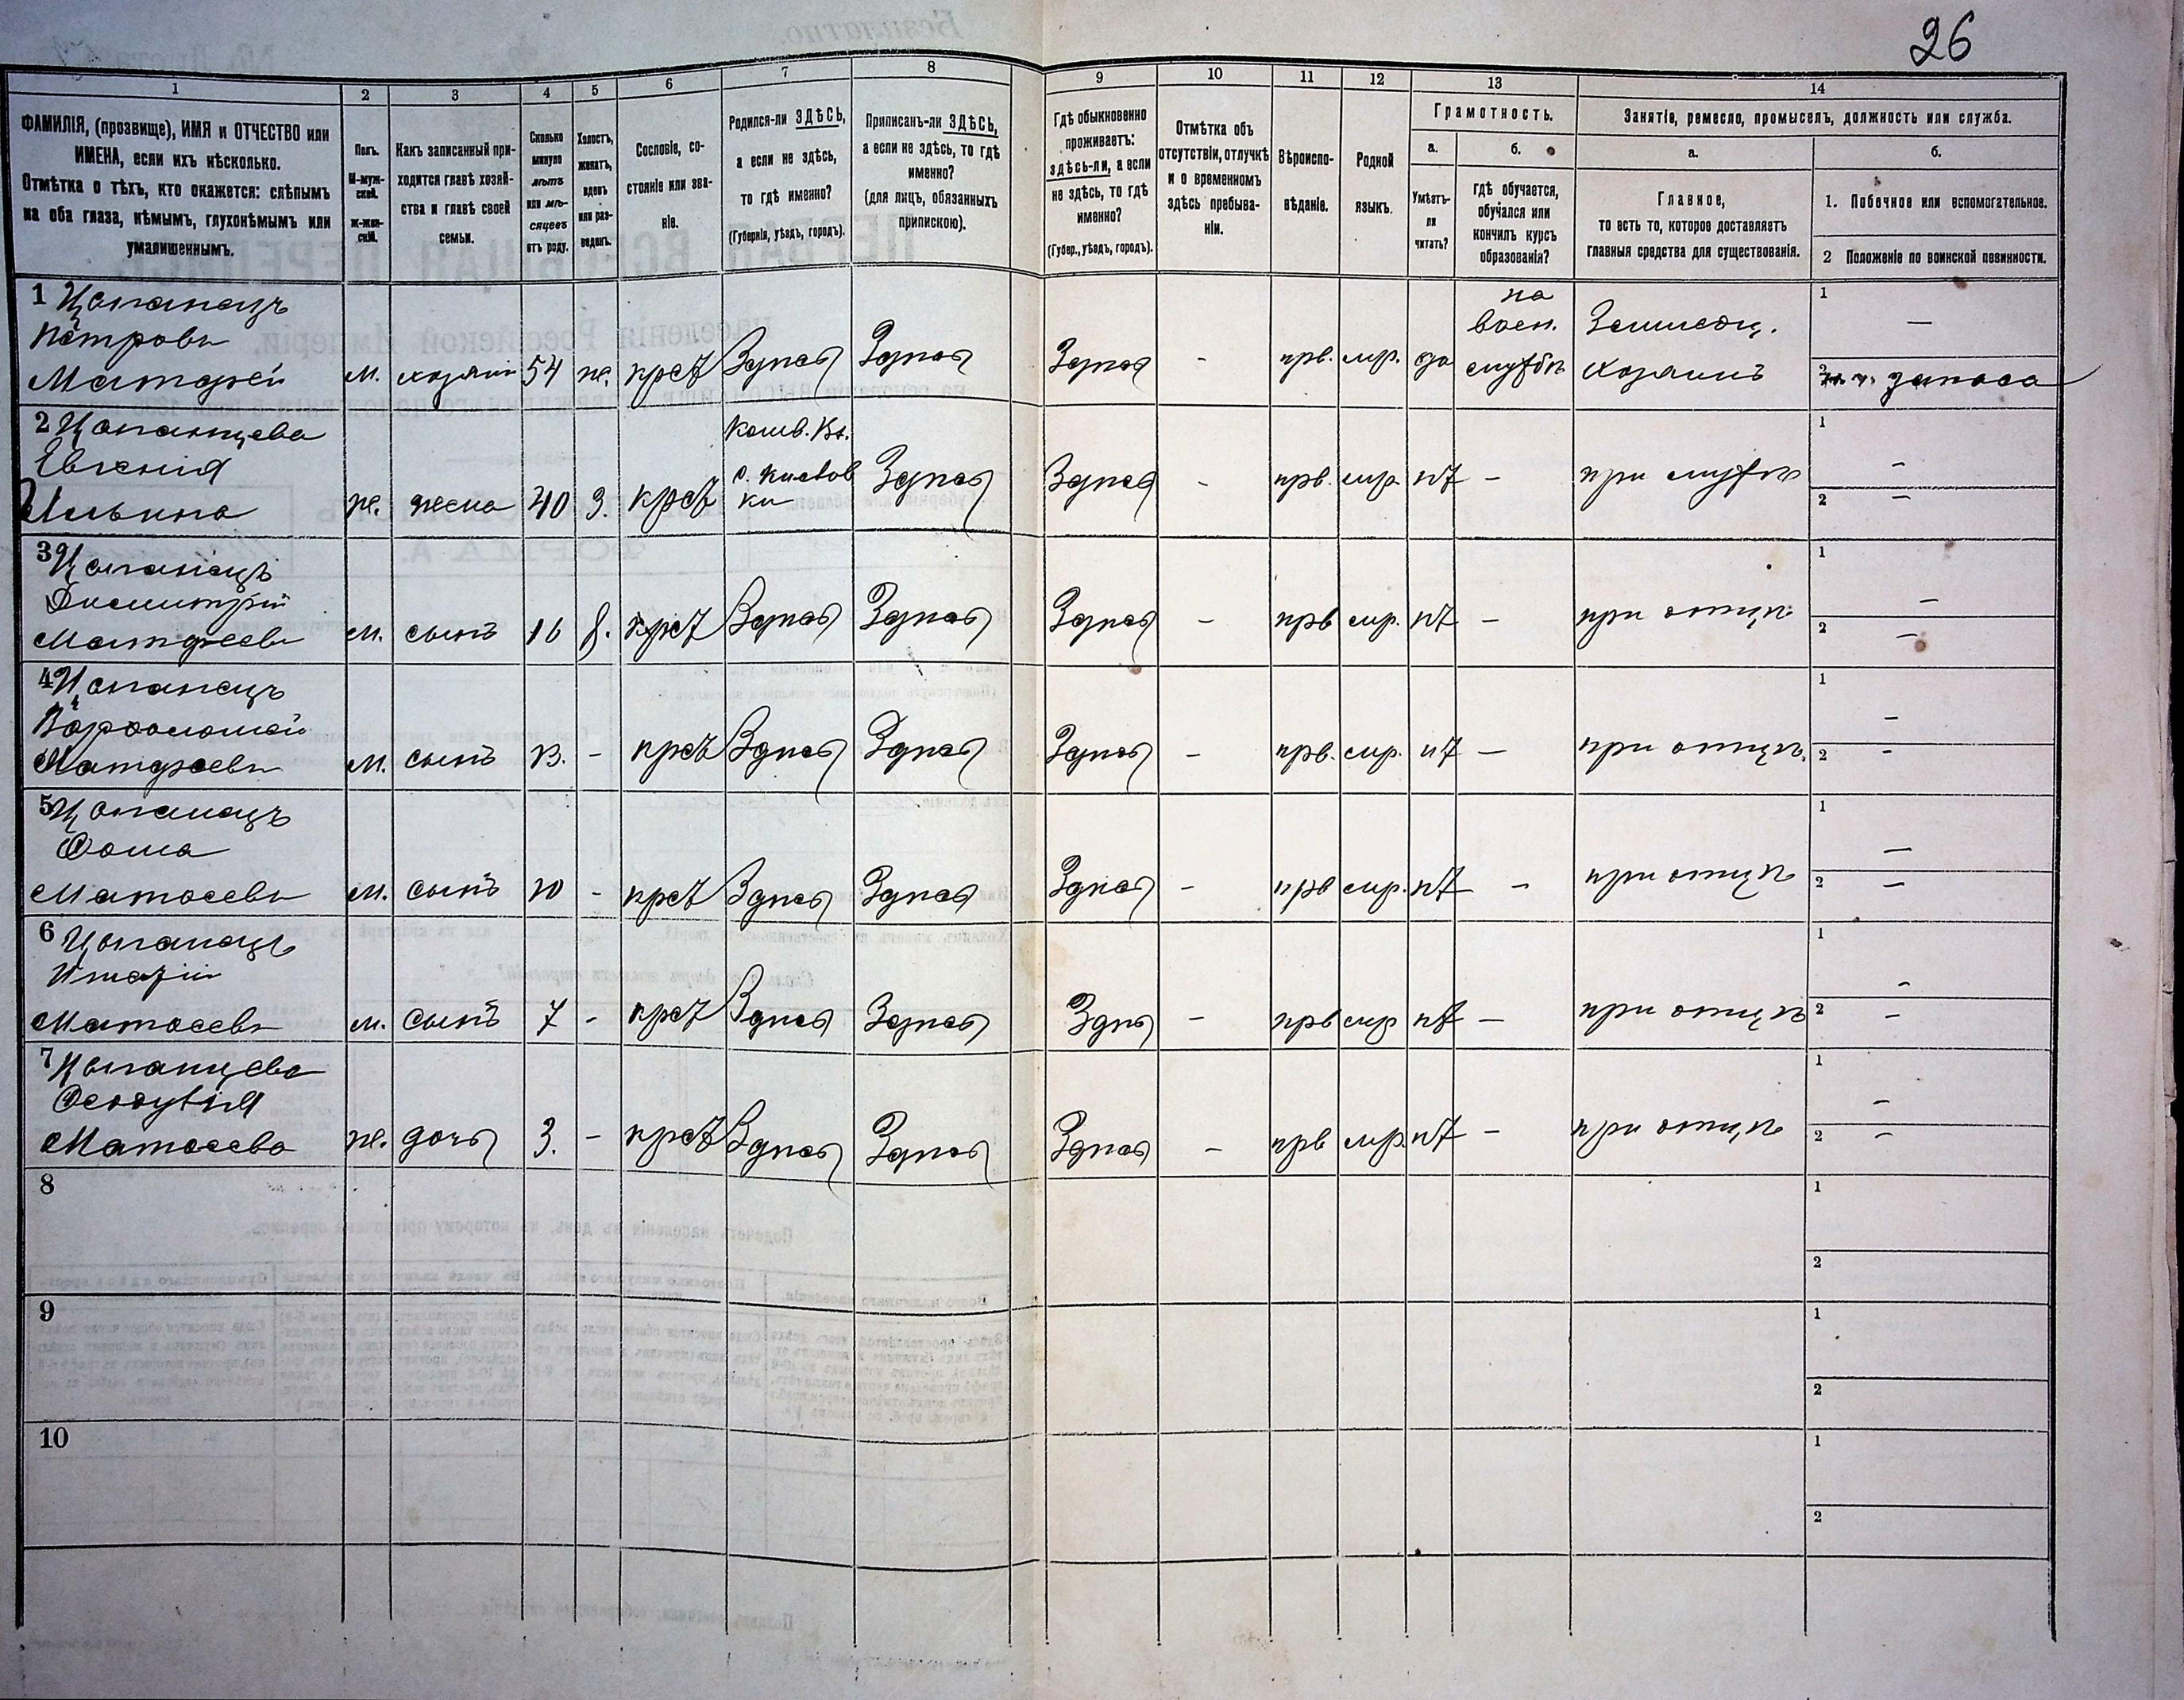 26
1
2
3
4
5
6
7
8
9
10
11
12
13
14
ФАМИЛІЯ, (прозвище), ИМЯ и ОТЧЕСТВО или
ИМЕНА, если ихъ нѣсколько.
Отмѣтка о тѣхъ, кто окажется: слѣпымъ
на оба глаза, нѣмымъ, глухонѣмымъ или
умалишеннымъ.
Полъ.
М-муж-
ской.
Ж-жен-
скій.
Какъ записанный при-
ходится главѣ хозяй-
ства и главѣ своей
семьи.
Сколько
минуло
лѣтъ
или мѣ-
сяцевъ
отъ роду.
Холостъ,
женатъ,
вдовъ
или раз-
веденъ.
Сословіе, со-
стояніе или зва-
ніе.
Родился-ли ЗДѢСЬ,
а если не здѣсь,
то гдѣ именно?
(Губернія, уѣздъ, городъ).
Приписанъ-ли ЗДѢСЬ,
а если не здѣсь, то гдѣ
именно?
(для лицъ, обязанныхъ
припискою).
Гдѣ обыкновенно
проживаетъ:
здѣсь-ли, а если
не здѣсь, то гдѣ
именно?
(Губер., уѣздъ, городъ).
Отмѣтка объ
отсутствіи, отлучкѣ
и о временномъ
здѣсь пребыва-
ніи.
Вѣроиспо-
вѣданіе.
Родной
языкъ.
Грамотность.
а.
Умѣетъ-
ли
читать?
б.
гдѣ обучается,
обучался или
кончилъ курсъ
образованія?
Занятіе, ремесло, промыселъ, должность или служба.
а.
Главное,
то есть то, которое доставляетъ
главныя средства для существованія.
б.
1. Побочное или вспомогательное.
2 Положеніе по воинской повинности.
1 Цопанецъ
Петровъ
Матфей
м. хозяинъ 54 ж. крест Здѣсь Здѣсь Здѣсь - прв. мр. да
на
воен.
службѣ
Земледѣ.
хозяинъ
1 —
2 запаса
2 Цопанцева
Евгенія
Ильина
ж. жена 40 З. крест
с.
ки
Здѣсь Здѣсь - прв. мр. нѣт - при мужѣ
1 -
2 -
3 Цопанецъ
Димитрій
Матфеевъ
м. сынъ 16 крест Здѣсь Здѣсь Здѣсь - прв мр. нѣт - при отцѣ
1 -
2 -
4 Цопанецъ
Варфоломей
Матфеевъ
м. сынъ 13. - крест Здѣсь Здѣсь Здѣсь - прв. мр. нѣт - при отцѣ.
1 -
2 -
5 Цопанецъ
Фома
Матфеевъ
м. сынъ 10 - крест Здѣсь Здѣсь Здѣсь - прв мр. нѣт - при отцѣ
1 -
2 -
6 Цопанецъ
Матфеевъ
м. сынъ 7 - крест Здѣсь Здѣсь Здѣсь - прв мр нѣт - при отцѣ
1 -
2 -
7 Цопанцева
Матфеева
ж. дочь 3. - крест Здѣсь Здѣсь Здѣсь - прв мр. нѣт - при отцѣ
1 -
2 -
8
1
2
9
1
2
10
1
2